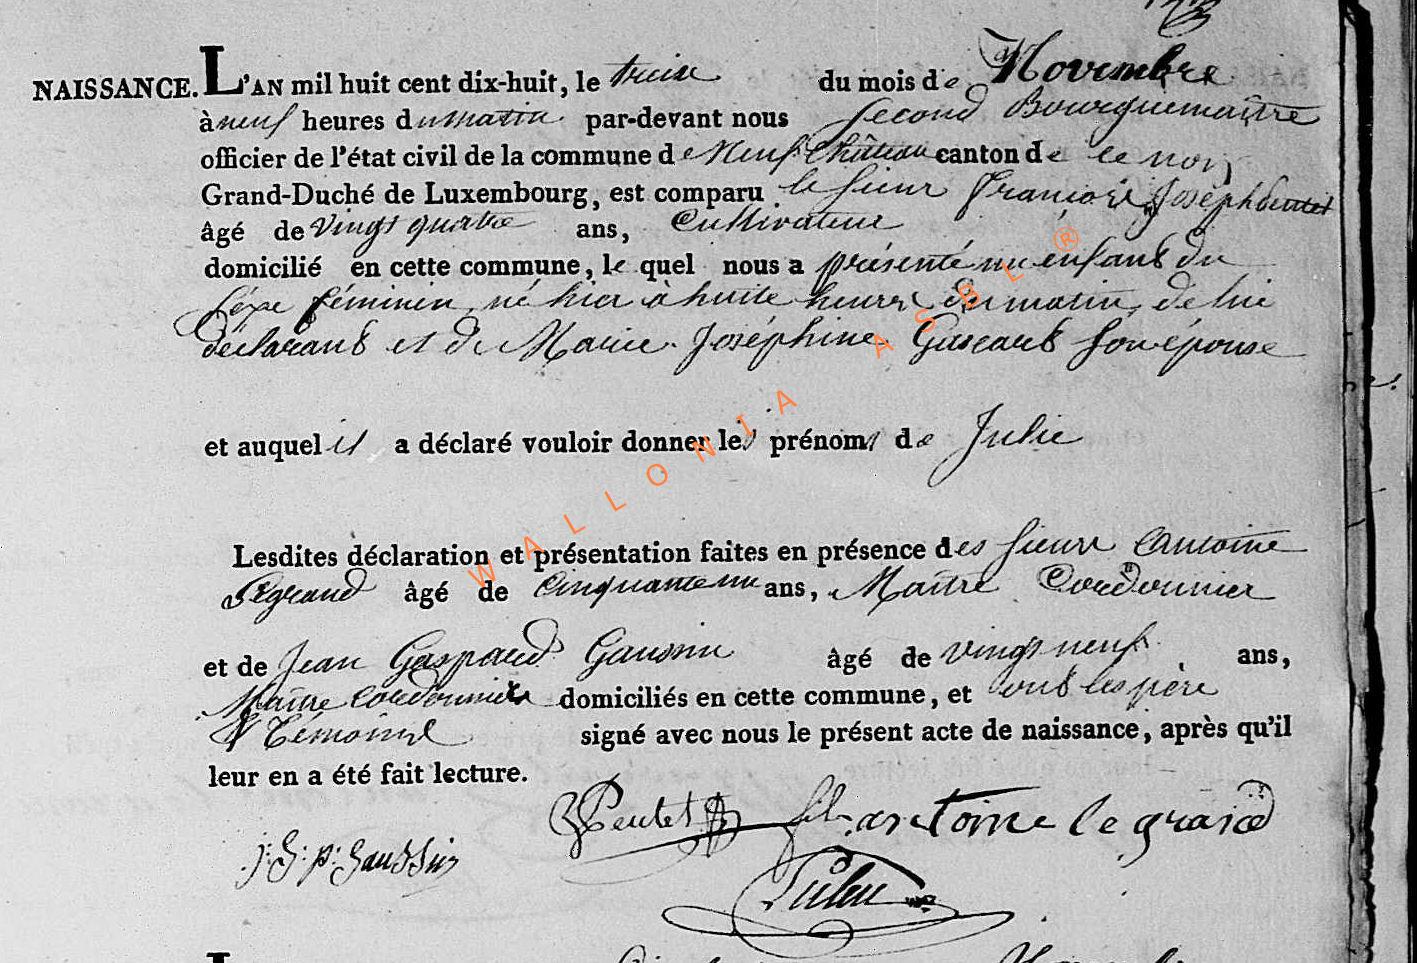 NAISSANCE. L'AN mil huit cent dix-huit, le treize du mois de Novembre
à neuf heures du matin par-devant nous second Bourguemaître
officier de l'état civil de la commune de Neufchâteau canton de ce nom,
Grand-Duché de Luxembourg, est comparu le sieur François Joseph
âgé de vingt quatre ans, Cultivateur
domicilié en cette commune, lequel nous a présenté un enfant du
séxe féminin, né hier à huite heures du matin, de lui
déclarant et de Marie Joséphine Gascart son épouse
et auquel il a déclaré vouloir donner les prénoms de Julie
Lesdites déclaration et présentation faites en présence des sieurs Antoine
Legrand âgé de Cinquante un ans, Maître Cordonnier
et de Jean Gaspard Gaussin âgé de vingt neuf ans,
Maître Cordonnier domiciliés en cette commune, et ont les père
& Témoins signé avec nous le présent acte de naissance, après qu'il
leur en a été fait lecture.
Peutet antoine le grand
j: G: p: Gaussin
WALLONIA ASBL ®